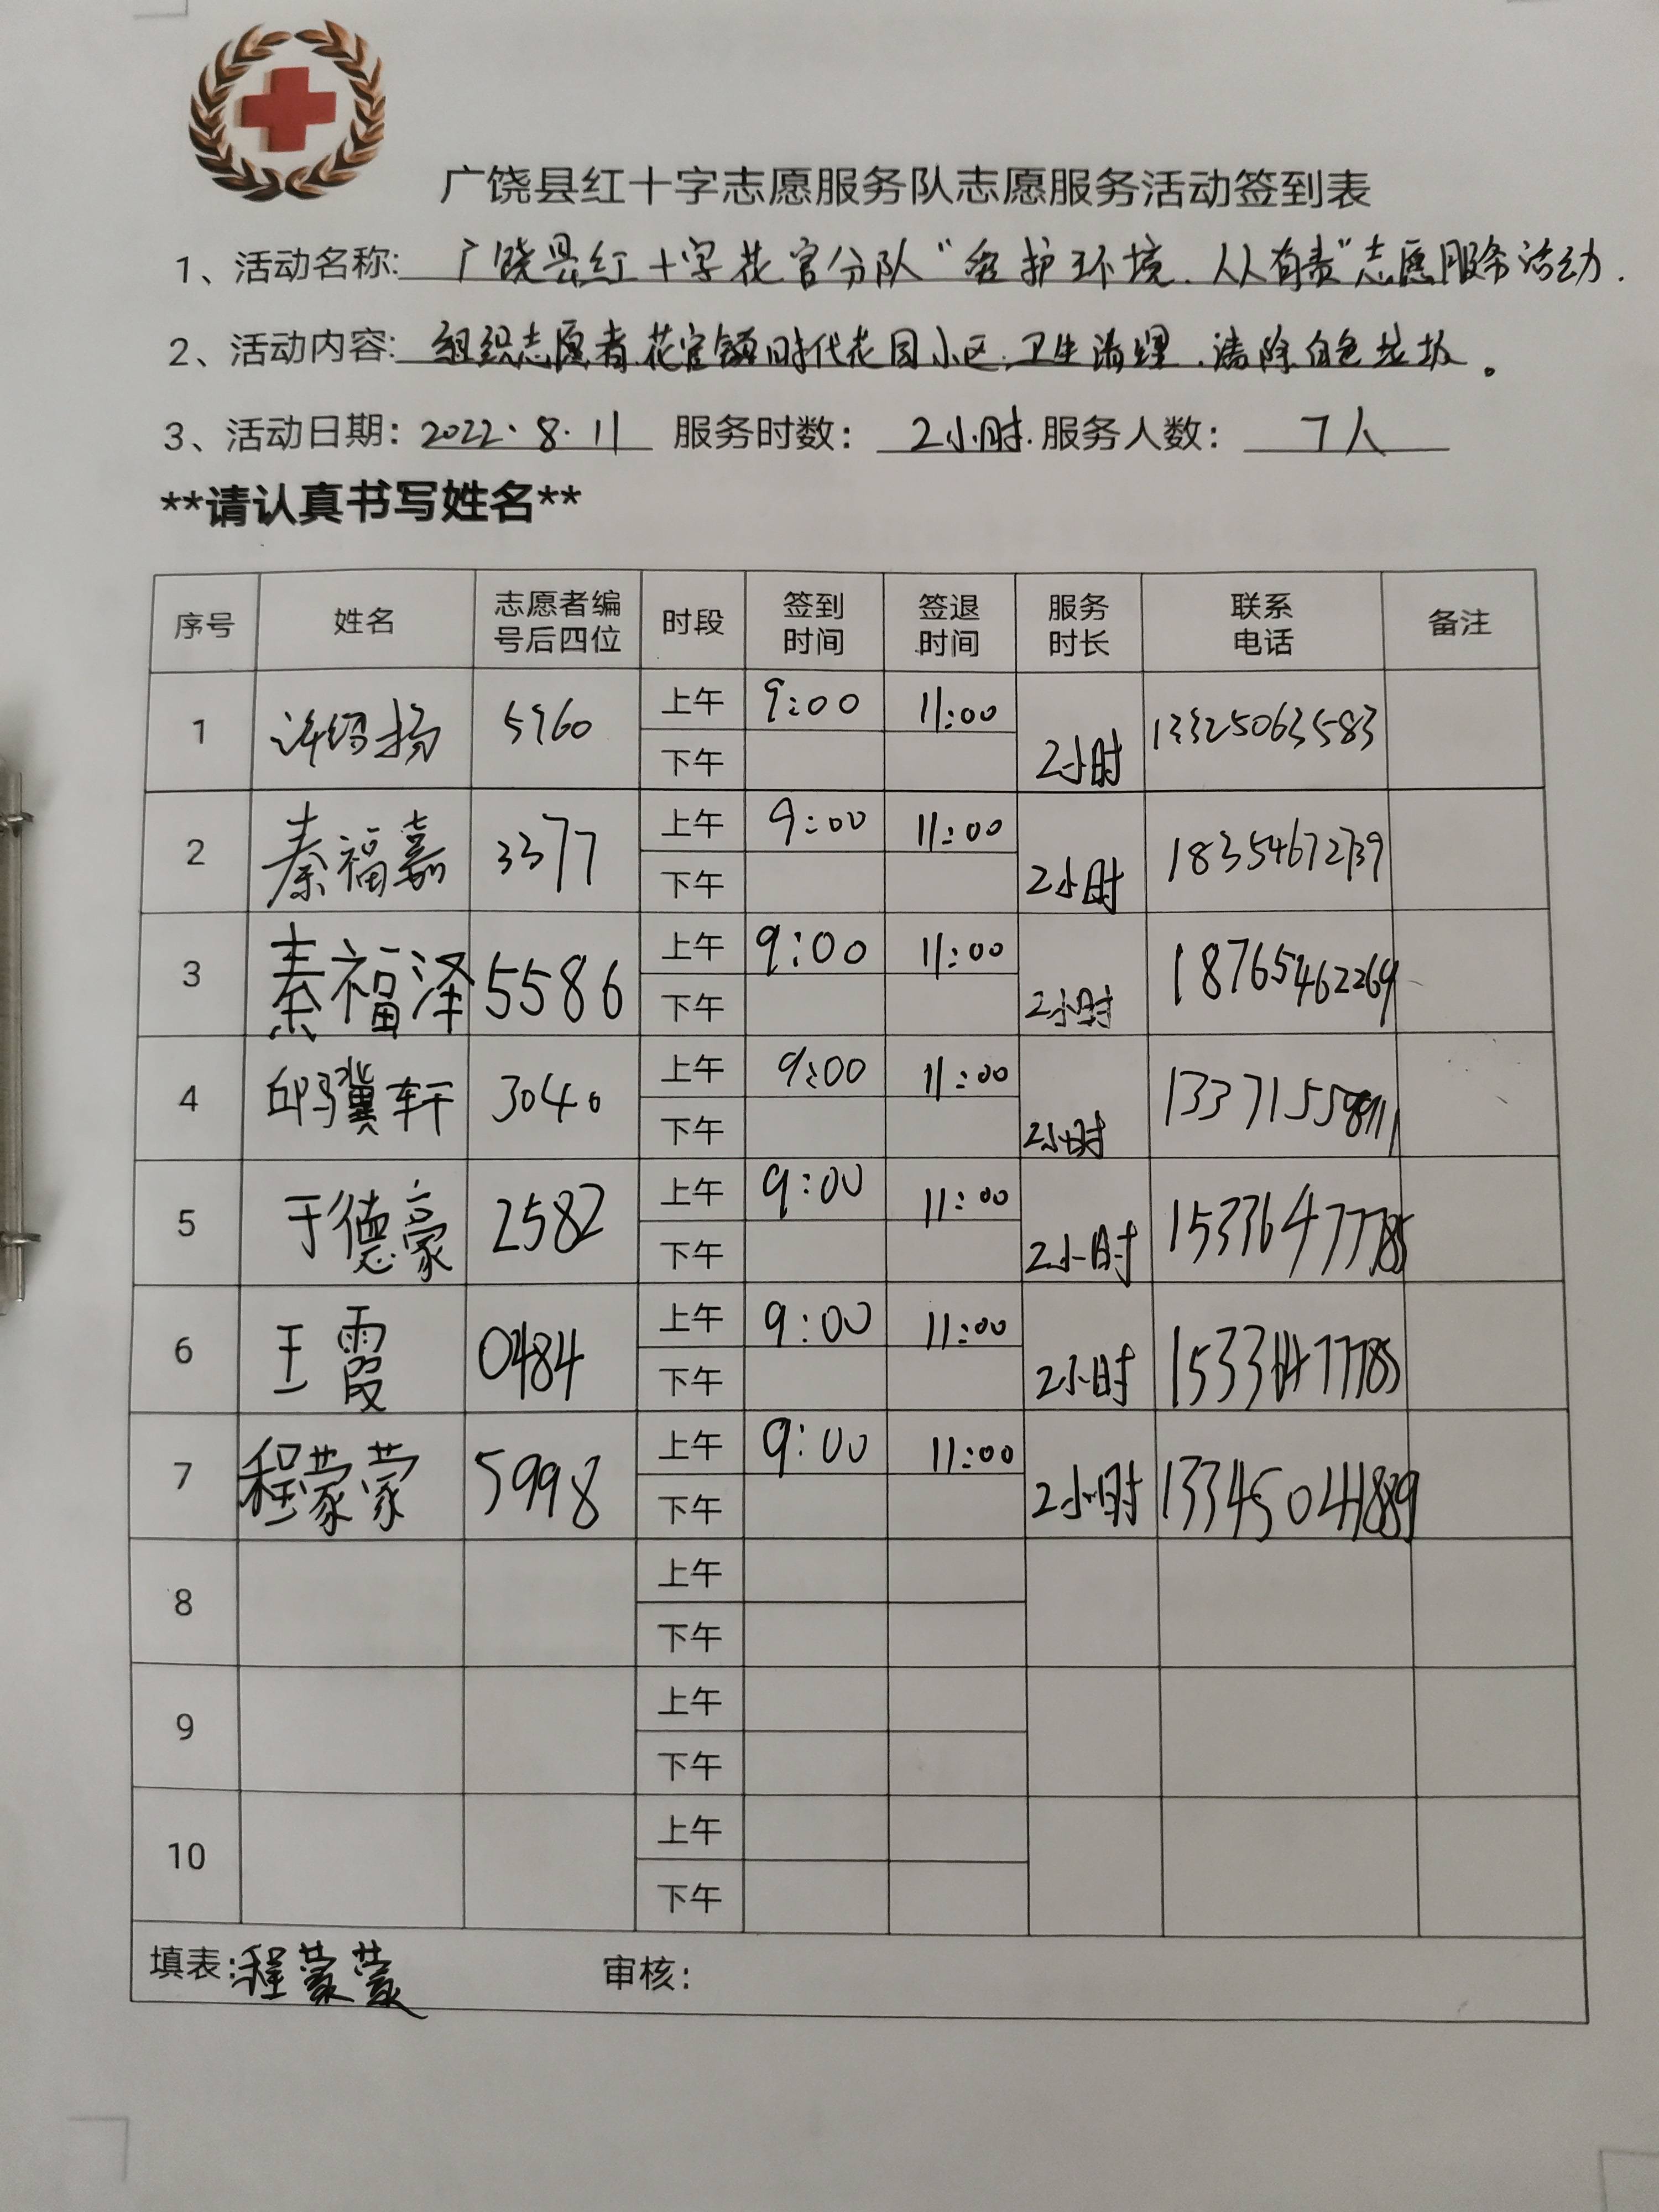 广饶县红十字志愿服务队志愿服务活动签到表
1、活动名称: 广饶县红十字花官分队“爱护环境、人人有责”志愿服务活动.
2、活动内容: 组织志愿者花官镇时代花园小区卫生清理、清除白色垃圾。
3、活动日期: 2022.8.11 服务时数: 2小时. 服务人数: 7人
**请认真书写姓名**
序号 姓名 志愿者编号后四位 时段 签到时间 签退时间 服务时长 联系电话 备注
1 5960 上午 9:00 11:00 2小时 13325063583
下午
2 秦福嘉 3377 上午 9:00 11:00 2小时 18354672739
下午
3 秦福泽 5586 上午 9:00 11:00 2小时 18765462269
下午
4 邱骥轩 3040 上午 9:00 11:00 2小时
下午
5 于德豪 2582 上午 9:00 11:00 2小时 15336477785
下午
6 王霞 0484 上午 9:00 11:00 2小时
下午
7 程蒙蒙 5998 上午 9:00 11:00 2小时 13345041889
下午
8 上午
下午
9 上午
下午
10 上午
下午
填表: 程蒙蒙 审核: